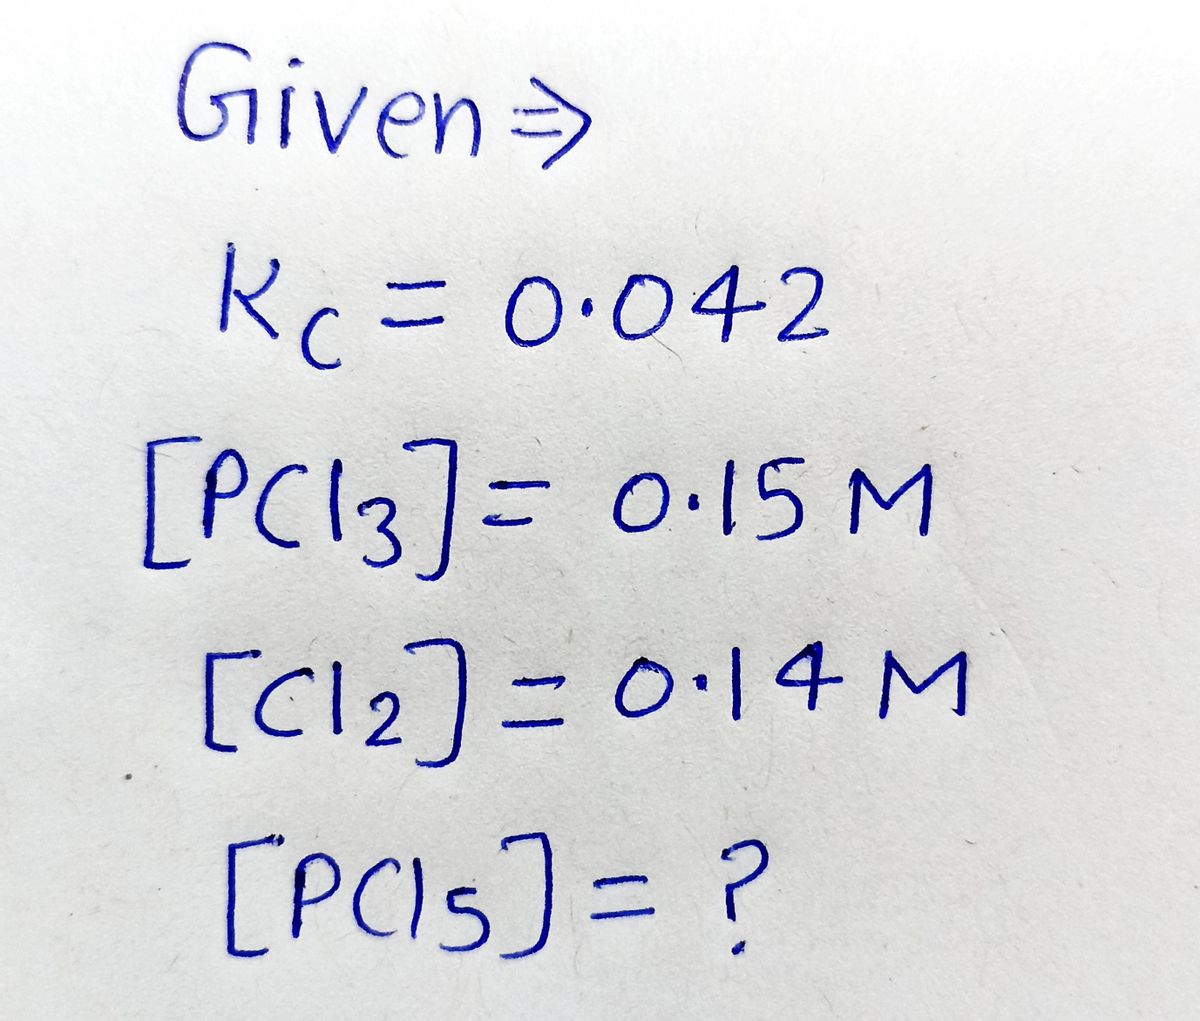 Given ⇒
Kc = 0.042
[PCl3] = 0.15 M
[Cl2] = 0.14 M
[PCl5] = ?